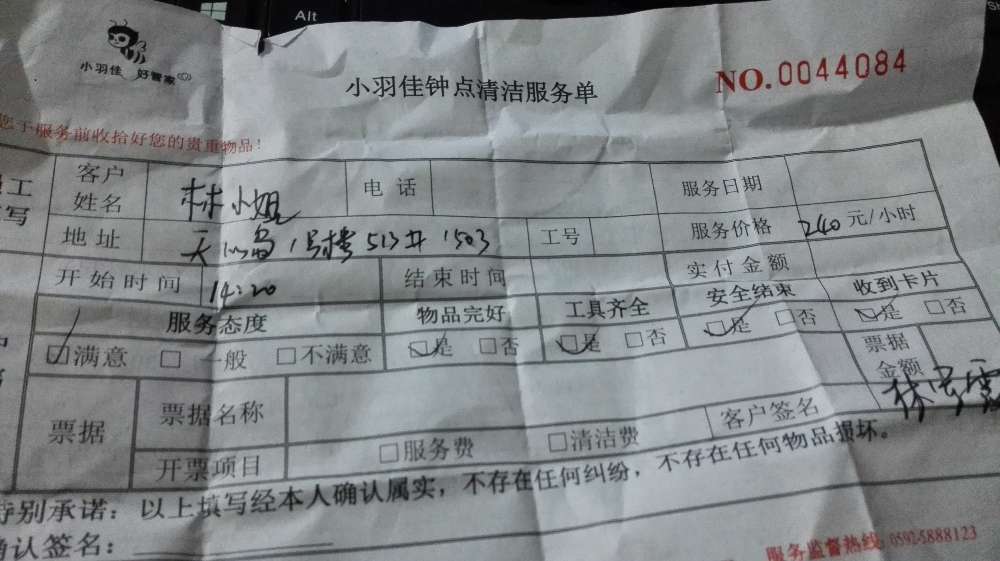 Alt
小羽佳 好管家
小羽佳钟点清洁服务单
NO.0044084
您于服务前收拾好您的贵重物品！
工
写
客户姓名 林小姐 电话 服务日期
地址 1号楼513# 1503 工号 服务价格 240 元/小时
开始时间 14:20 结束时间 实付金额
服务态度 物品完好 工具齐全 安全结束 收到卡片
满意 一般 不满意 是 否 是 否 是 否 是 否
票据 票据名称 客户签名 票据金额
开票项目 服务费 清洁费
特别承诺：以上填写经本人确认属实，不存在任何纠纷，不存在任何物品损坏。
确认签名：
服务监督热线：0592-5888123